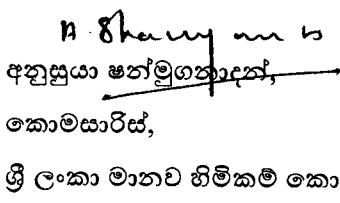 අනුසුයා ෂන්මුගනාදන්,
කොමසාරිස්,
ශ්‍රී ලංකා මානව හිමිකම් කො